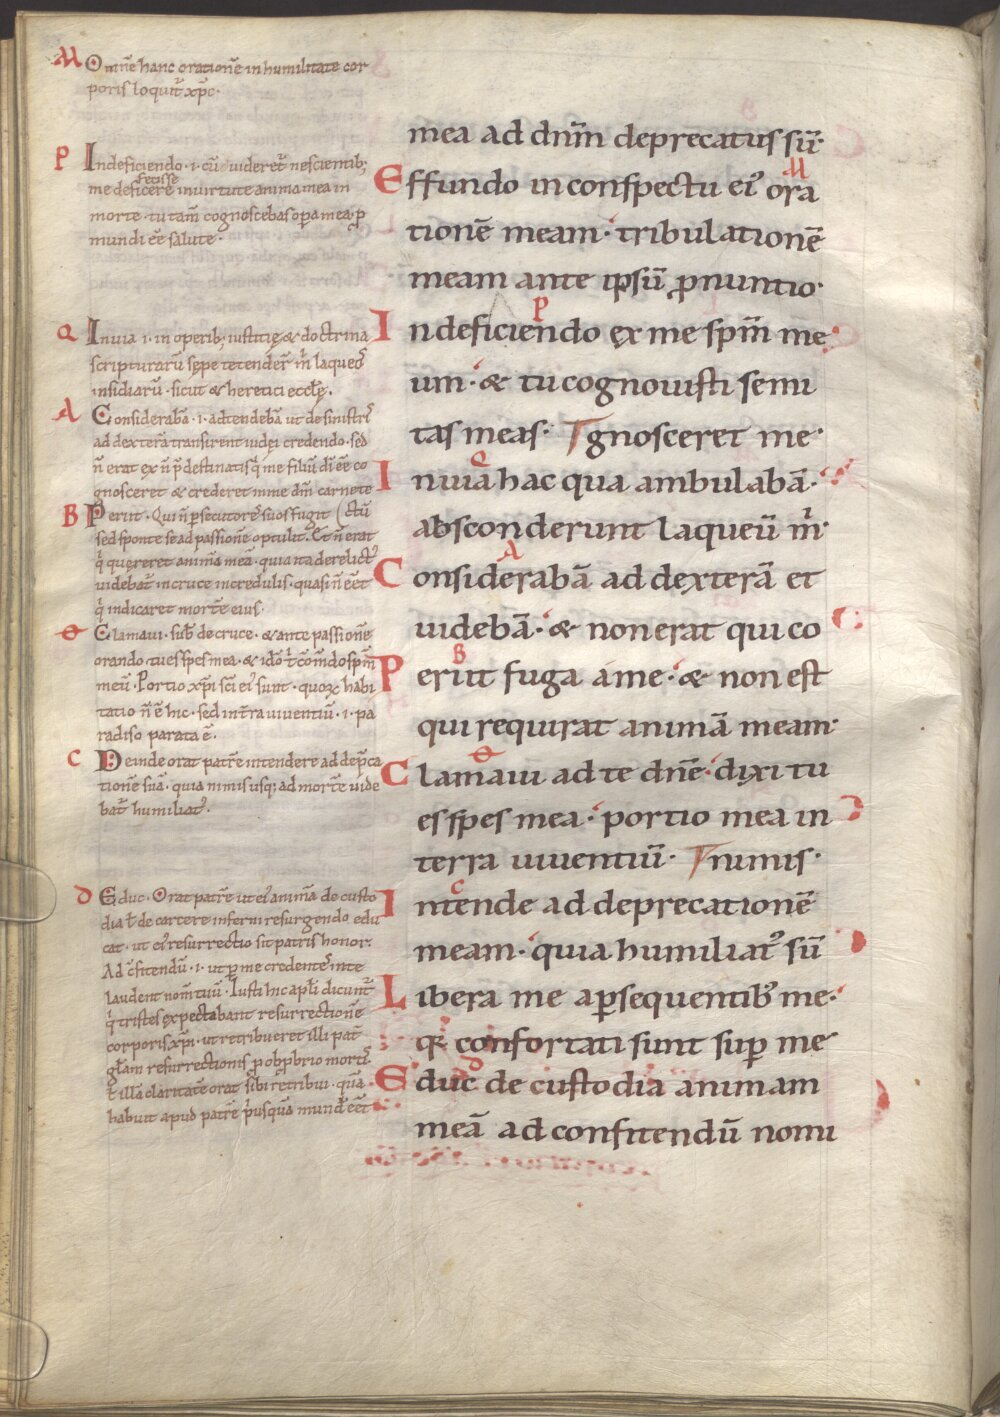 M Omnē hanc orationē in humilitate cor
poris loquit̄ xp̄c·
P Indeficiendo · i · cū uideret̄ nescientib;
fecisse
me deficere in uirtute anima mea in
morte · tu tam̄ cognoscebas opa mea, p
mundi ēē salute ·
Q In uia · i · in operib; iustitię & doctrina
scripturarū sępe tetender̄ m̄ laqueos
insidiarū · sicut & heretici eccl̄ę.
A Considerabā · i · adtendebā ut de sinistris
ad dexterā transirent iudęi credendo · sed
n̄ erat ex n̄ p̄destinatis q̇ me filiū dī ēē co
gnosceret & crederet in me dm̄ carne te
B Perut · Qui n̄ p̄secutores suos fugit (ctū
sed sponte se ad passionē optulit. Et n̄ erat
q̇ quęreret animā meā · quia ita derelictus
uidebat̄ in cruce incredulis · quasi n̄ ēēt
q̇ indicaret mortē eius.
Clamaui · sub̄ de cruce · & ante passionē
orando · tu es spes mea · & idō t̄ cōm̄do spm̄
meū · Portio xp̄i sc̄i ei' sunt · quoꝝ habi
tatio n̄ ē hic · sed in t̄ra uiuentiū · i · pa
radiso parata ē ·
C Deinde orat patrē intendere ad dep̄ca
tionē suā · quia nimis usq; ad mortē uide
bat̄ humiliat' ·
D Educ · Orat patrē ut ei' animā de custo
dia t̄ de carcere inferni resurgendo edu
cat · ut ei' resurrectio sit patris honor·
Ad c̄fitendū · i · ut p me credentes in te
laudent nom̄ tuū · Iusti hic apl̄i dicunt̄
q̇ tristes expectabant resurrectionē
corporis xp̄i · ut retribueret illi pat̄
gl̄am resurrectionis p obp̄brio mortis
t̄ illā claritatē orat sibi retribui · quā
habuit apud patrē p̄usquā mund' ēēt
mea ad dn̄m deprecatus sū·
M
Effundo in conspectu ei' ora
tionē meam · tribulationē
meam ante ipsū p̄nuntio·
P
Indeficiendo ex me spm̄ me
um · & tu cognouisti semi
tas meas · gnosceret me·
Q
In uia hac qua ambulabā ·
absconderunt laqueū m̄·
A
Considerabā ad dexterā et
uidebā · & non erat qui co
B
Periit fuga a me · & non est
qui requirat animā meam·
Clamaui ad te dn̄e · dixi tu
es spes mea · portio mea in
terra uiuentiū · nimis ·
C
Intende ad deprecationē
meam · quia humiliat' sū
Libera me a p̄sequentib' me·
qr̄ confortati sunt sup me
D
Educ de custodia animam
meā ad confitendū nomi